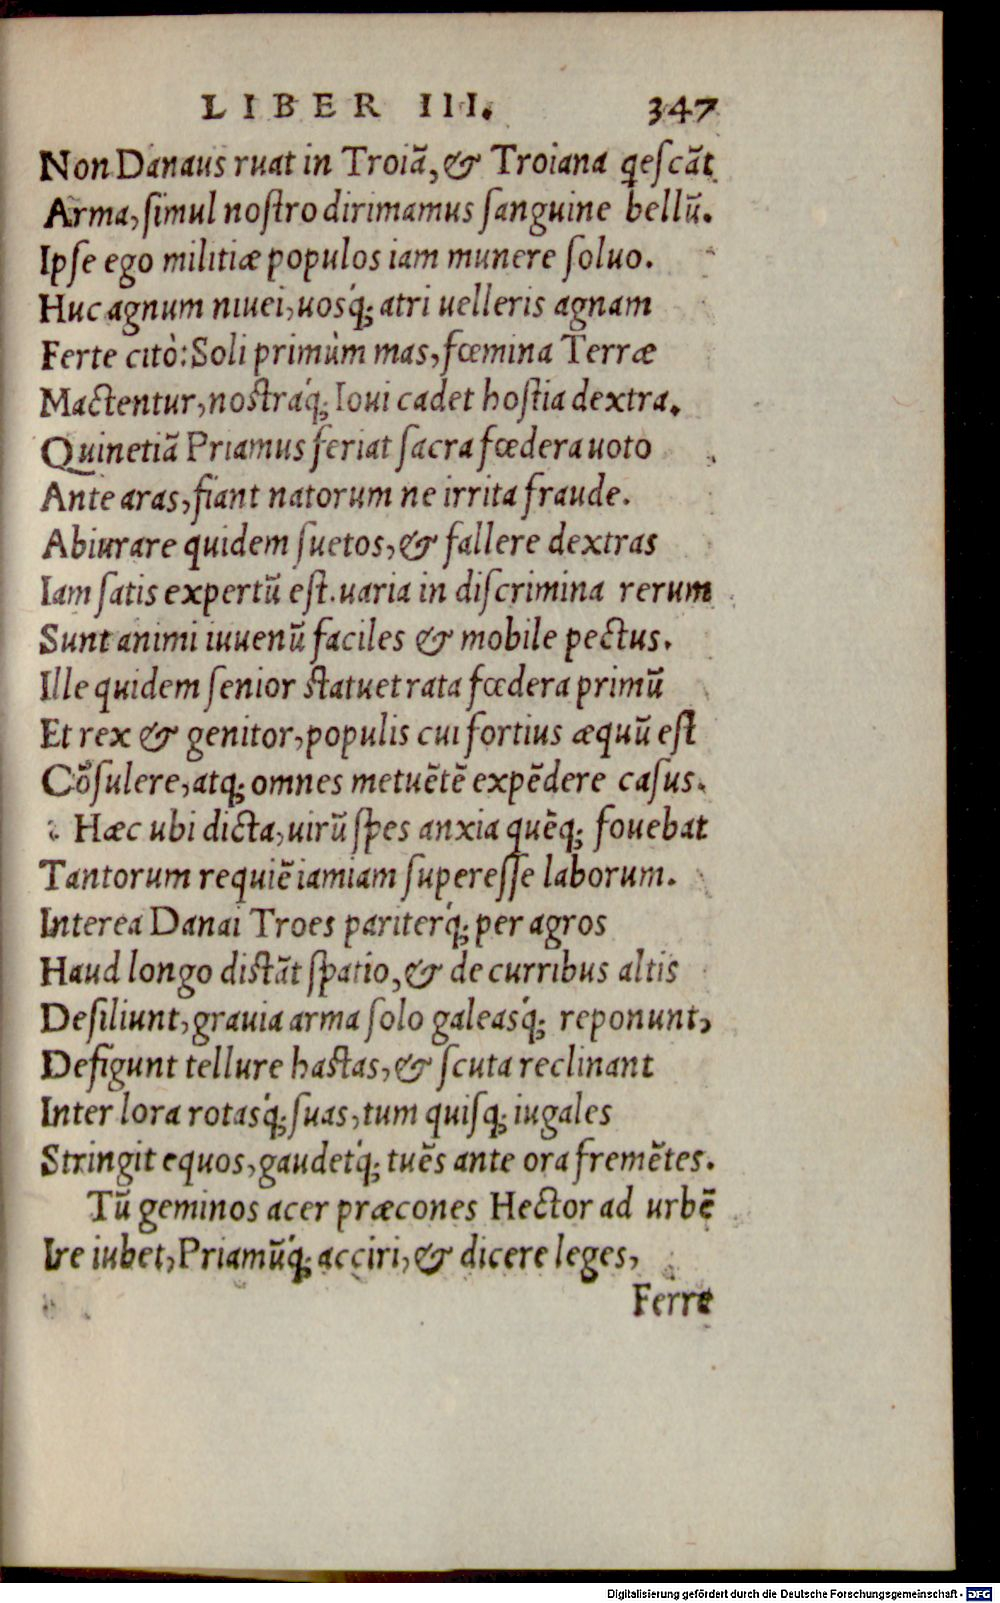 LIBER III. 347
Non Danaus ruat in Troiã, & Troiana q̃escãt
Arma, simul nostro dirimamus sanguine bellũ.
Ipse ego militiæ populos iam munere soluo.
Huc agnum niuei, uosq́; atri uelleris agnam
Ferte citò: Soli primùm mas, fœmina Terræ
Mactentur, nostráq́; Ioui cadet hostia dextra.
Quinetiã Priamus feriat sacra fœdera uoto
Ante aras, fiant natorum ne irrita fraude.
Abiurare quidem suetos, & fallere dextras
Iam satis expertũ est. uaria in discrimina rerum
Sunt animi iuuenũ faciles & mobile pectus.
Ille quidem senior statuet rata fœdera primũ
Et rex & genitor, populis cui fortius æquũ est
Cõsulere, atq; omnes metuẽtẽ expẽdere casus.
Hæc ubi dicta, uirũ spes anxia quẽq; fouebat
Tantorum requiẽ iamiam superesse laborum.
Interea Danai Troes pariterq́; per agros
Haud longo distãt spatio, & de curribus altis
Desiliunt, grauia arma solo galeasq́; reponunt,
Defigunt tellure hastas, & scuta reclinant
Inter lora rotasq́; suas, tum quisq; iugales
Stringit equos, gaudetq́; tuẽs ante ora fremẽtes.
Tũ geminos acer præcones Hector ad urbẽ
Ire iubet, Priamũq́; acciri, & dicere leges,
Ferre
Digitalisierung gefördert durch die Deutsche Forschungsgemeinschaft - DFG